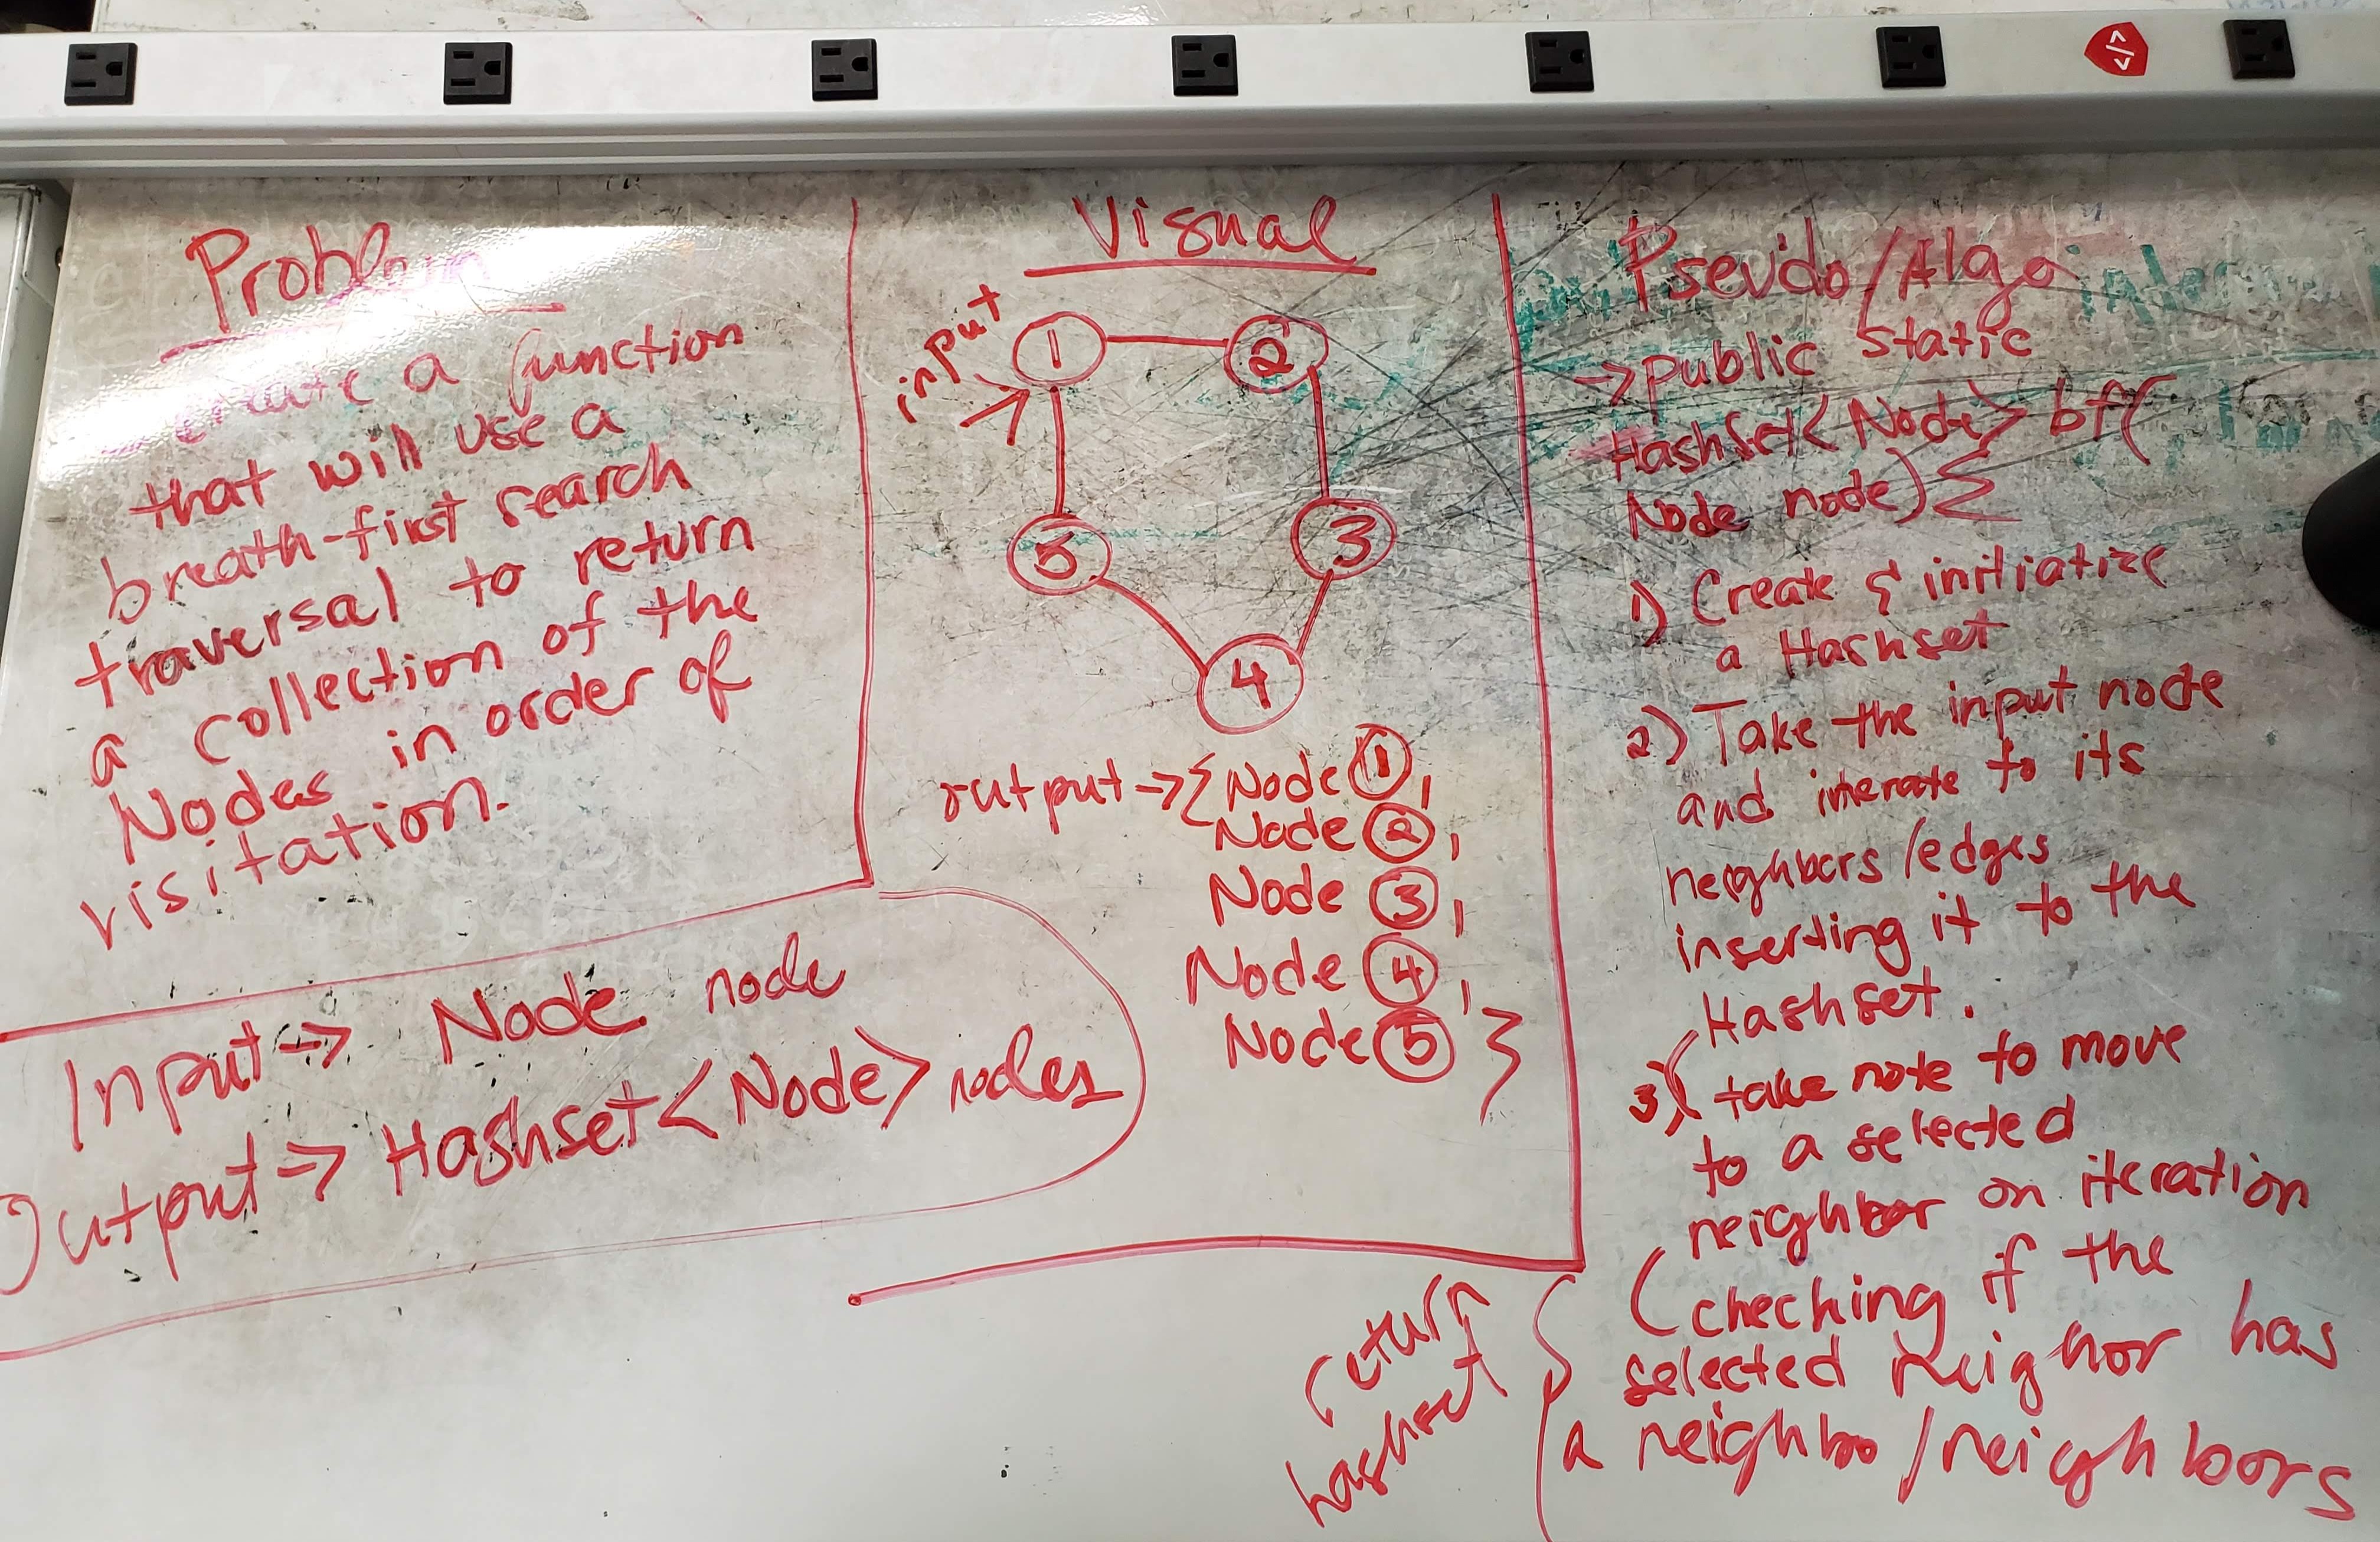 Problem
create a function
that will use a
breath-first search
traversal to return
a collection of the
Nodes in order of
visitation.
Input -> Node node
Output -> Hashset<Node> nodes
Visual
input
1
2
5
3
4
output -> {Node 1,
Node 2,
Node 3,
Node 4,
Node 5 }
Pseudo/Algo
-> public static
Hashset<Node> bf(
Node node) {
1) Create & initiatize
a Hashset
2) Take the input node
and interate to its
neighbors/edges
inserting it to the
Hashset.
3) take note to move
to a selected
neighbor on iteration
(checking if the
selected neighor has
a neighbo/neighbors
return
hashset